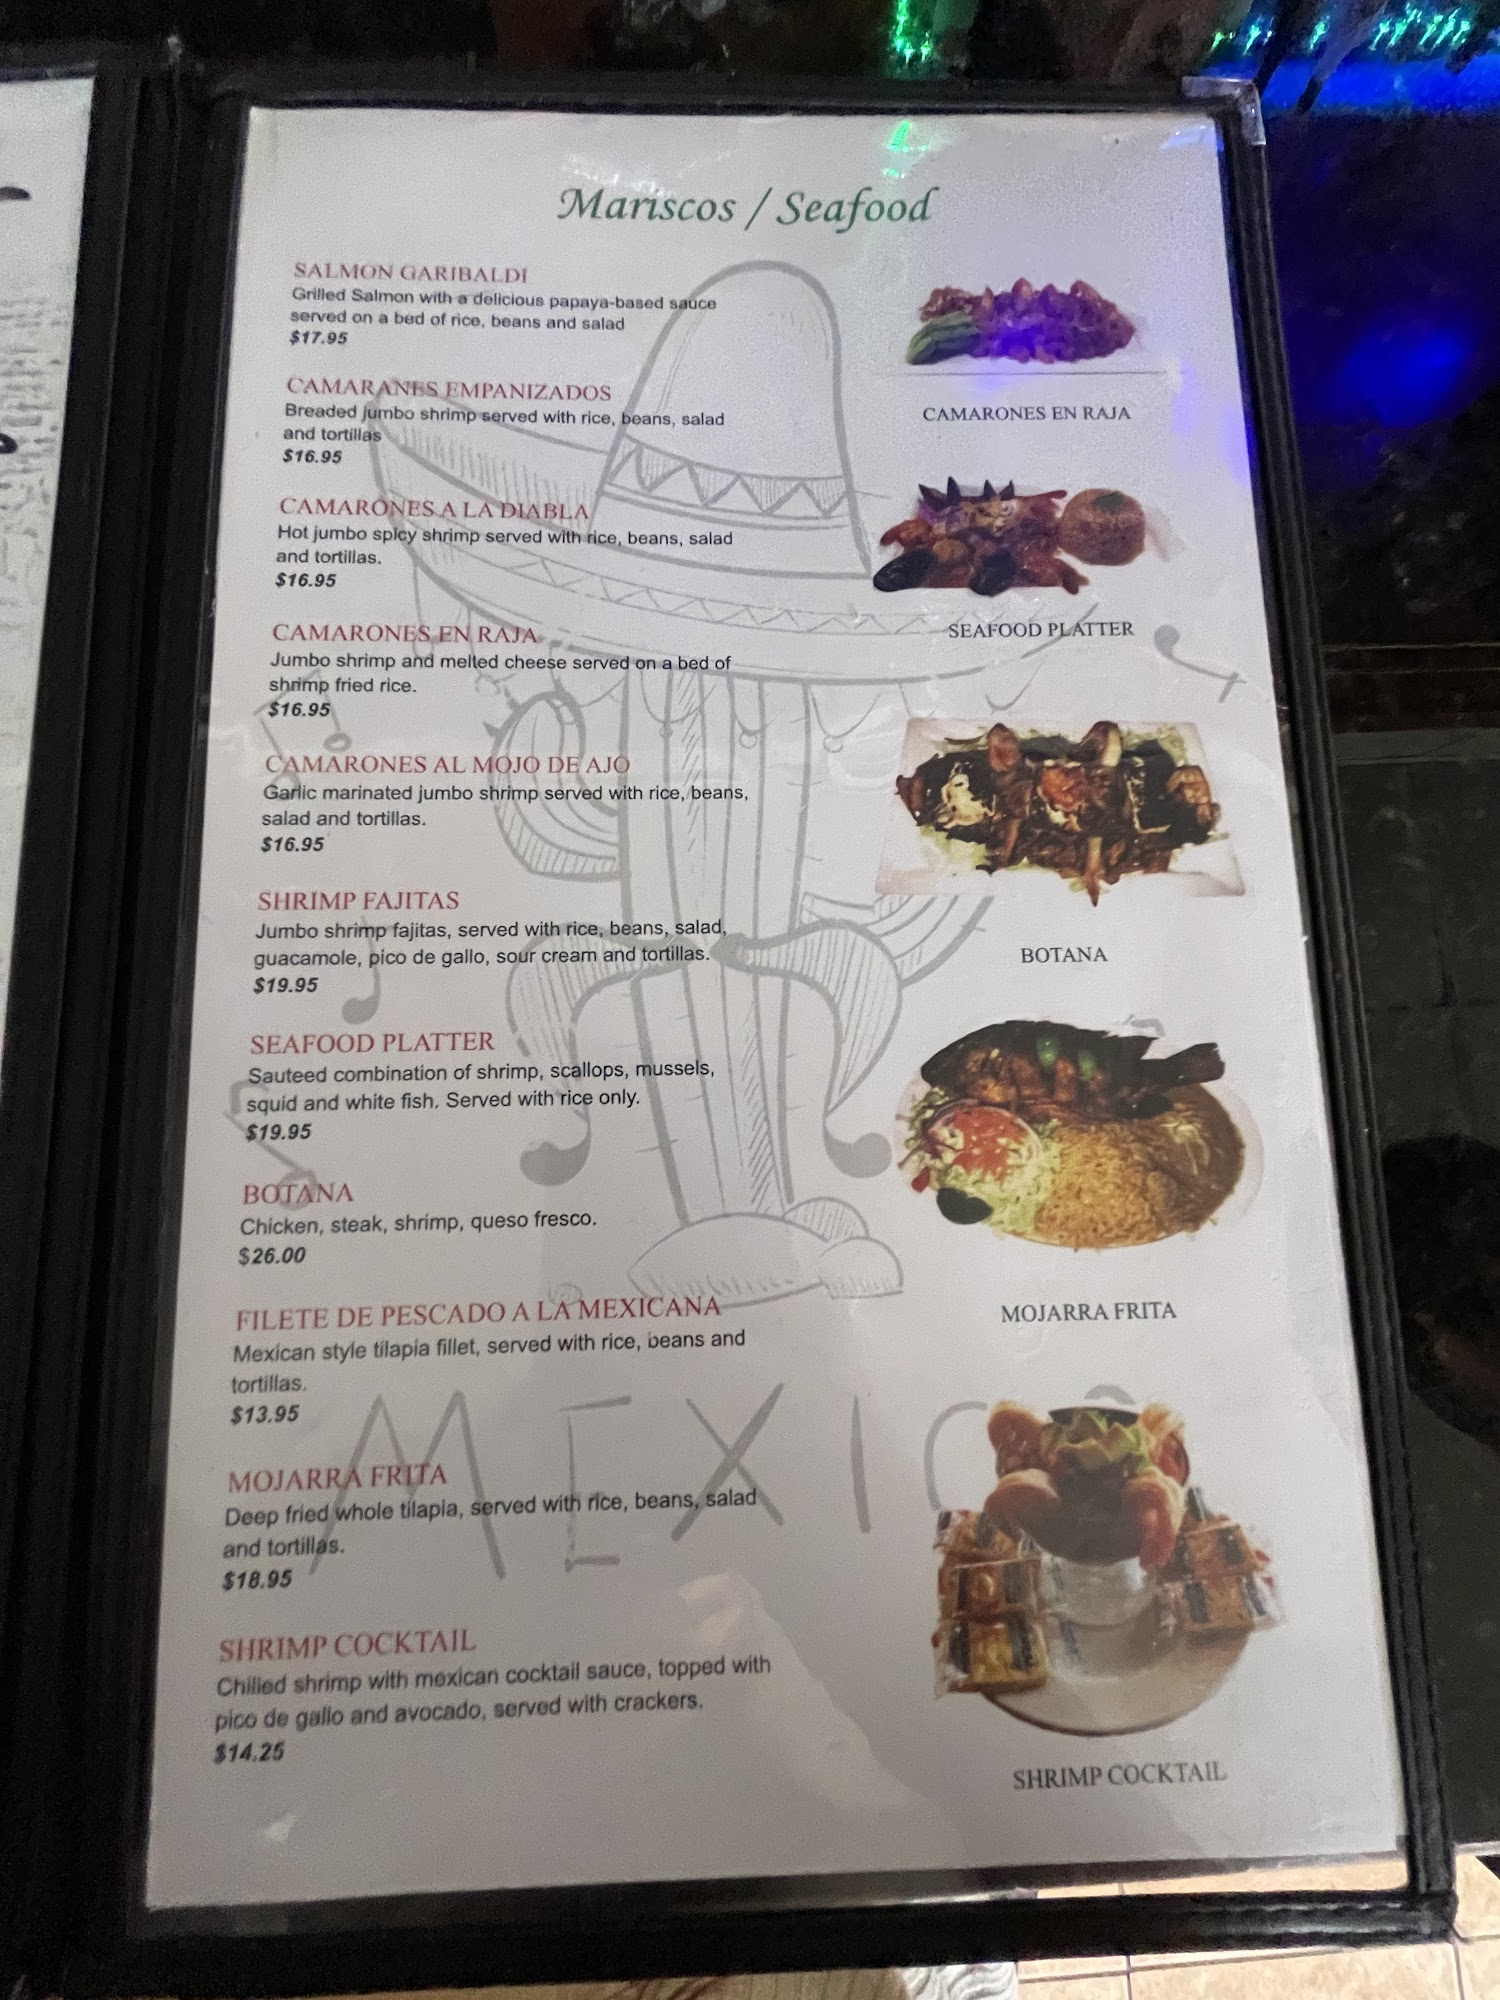 Mariscos / Seafood
SALMON GARIBALDI
Grilled Salmon with a delicious papaya-based sauce
served on a bed of rice, beans and salad
$17.95
CAMARANES EMPANIZADOS
Breaded jumbo shrimp served with rice, beans, salad
and tortillas
$16.95
CAMARONES A LA DIABLA
Hot jumbo spicy shrimp served with rice, beans, salad
and tortillas.
$16.95
CAMARONES EN RAJA
Jumbo shrimp and melted cheese served on a bed of
shrimp fried rice.
$16.95
CAMARONES AL MOJO DE AJO
Garlic marinated jumbo shrimp served with rice, beans,
salad and tortillas.
$16.95
SHRIMP FAJITAS
Jumbo shrimp fajitas, served with rice, beans, salad,
guacamole, pico de gallo, sour cream and tortillas.
$19.95
SEAFOOD PLATTER
Sauteed combination of shrimp, scallops, mussels,
squid and white fish. Served with rice only.
$19.95
BOTANA
Chicken, steak, shrimp, queso fresco.
$26.00
FILETE DE PESCADO A LA MEXICANA
Mexican style tilapia fillet, served with rice, beans and
tortillas.
$13.95
MOJARRA FRITA
Deep fried whole tilapia, served with rice, beans, salad
and tortillas.
$18.95
SHRIMP COCKTAIL
Chilled shrimp with mexican cocktail sauce, topped with
pico de gallo and avocado, served with crackers.
$14.25
CAMARONES EN RAJA
SEAFOOD PLATTER
BOTANA
MOJARRA FRITA
SHRIMP COCKTAIL
MEXIC